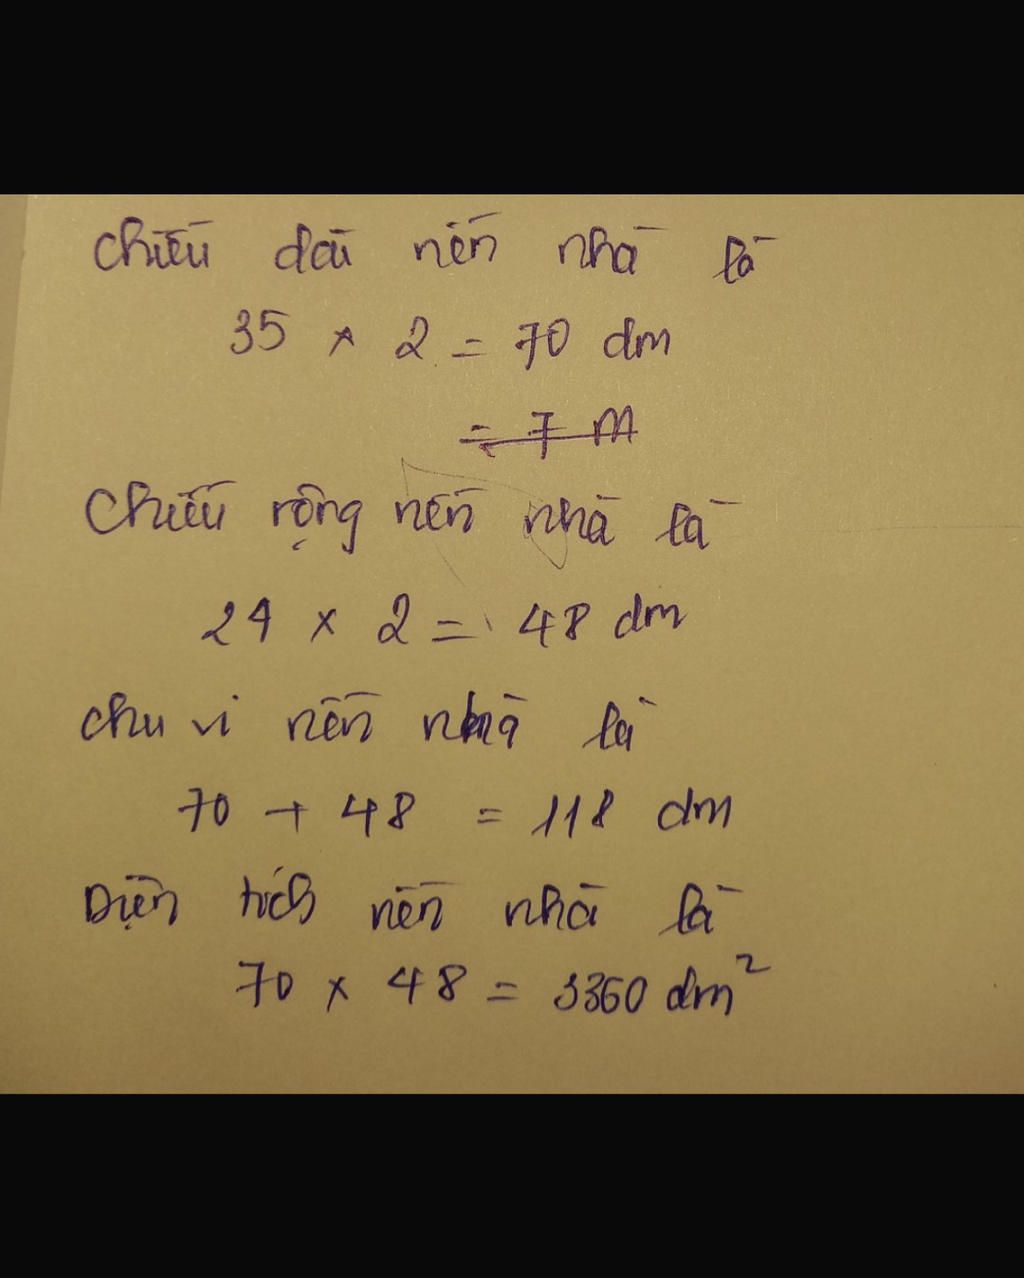 Chiều dài nền nhà là
35 × 2 = 70 dm
= 7 m
Chiều rộng nền nhà là
24 × 2 = 48 dm
chu vi nền nhà là
70 + 48 = 118 dm
Diện tích nền nhà là
70 × 48 = 3360 dm²